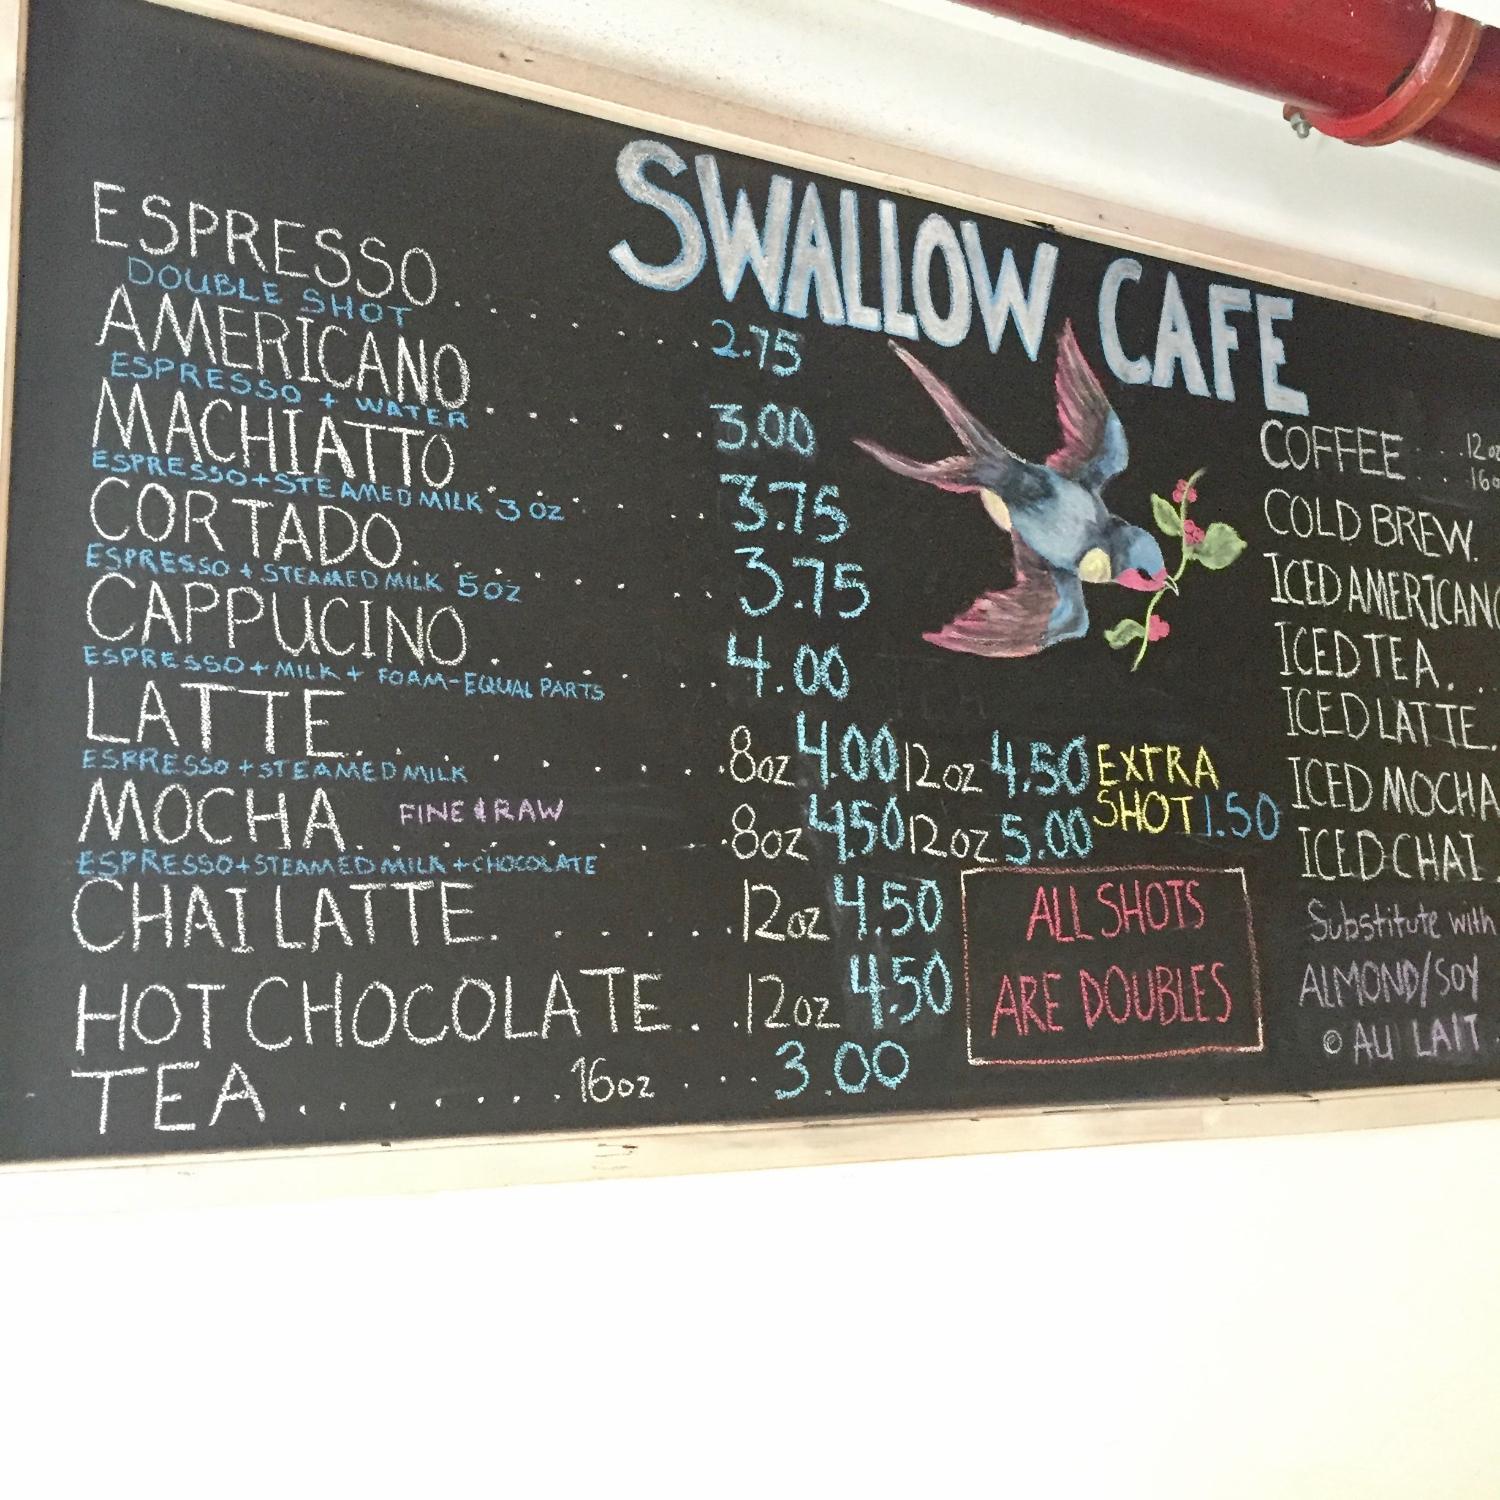 SWALLOW CAFE
ESPRESSO. . . . . . . . . 2.75
DOUBLE SHOT
AMERICANO. . . . . . . . 3.00
ESPRESSO + WATER
MACHIATTO. . . . . . . . 3.75
ESPRESSO+STEAMED MILK 3 OZ
CORTADO. . . . . . . . . 3.75
ESPRESSO + STEAMED MILK 5OZ
CAPPUCINO. . . . . . . . 4.00
ESPRESSO + MILK + FOAM-EQUAL PARTS
LATTE. . . . . . . . . 8oz 4.00 12oz 4.50
ESPRESSO + STEAMED MILK
MOCHA. FINE & RAW . . . . . . . . 8oz 4.50 12oz 5.00
ESPRESSO+STEAMED MILK + CHOCOLATE
CHAI LATTE. . . . . . . 12oz 4.50
HOT CHOCOLATE. . . 12oz 4.50
TEA. . . . . . . . 16oz . . . . 3.00
EXTRA
SHOT 1.50
ALL SHOTS
ARE DOUBLES
COFFEE . . . . 12oz
. . . 16oz
COLD BREW.
ICED AMERICANO
ICED TEA. . .
ICED LATTE.
ICED MOCHA
ICED CHAI
Substitute with
ALMOND/SOY
@ AU LAIT